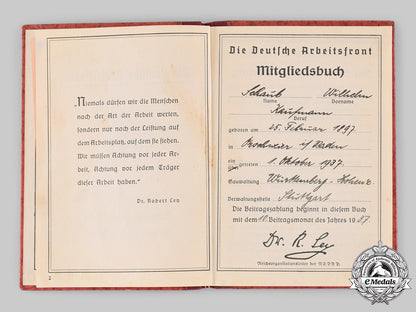 „Niemals dürfen wir die Menschen
nach der Art der Arbeit werten,
sondern nur nach der Leistung auf
dem Arbeitsplatz, auf dem sie stehen.
Wir müssen Achtung vor jeder Ar-
beit, Achtung vor jedem Träger
dieser Arbeit haben.“
Dr. Robert Ley
2
Die Deutsche Arbeitsfront
Mitgliedsbuch
Schaub Wilhelm
Name Vorname
Kaufmann
Beruf
geboren am 25. Februar 1897
in Baden
eingetreten 1. Oktober 1937.
Gauwaltung Württemberg-Hohenz.
Verwaltungsstelle Stuttgart
Die Beitragszahlung beginnt in diesem Buch
mit dem Beitragsmonat des Jahres 1937
Dr. R. Ley
Reichsorganisationsleiter der NSDAP.
eMedals